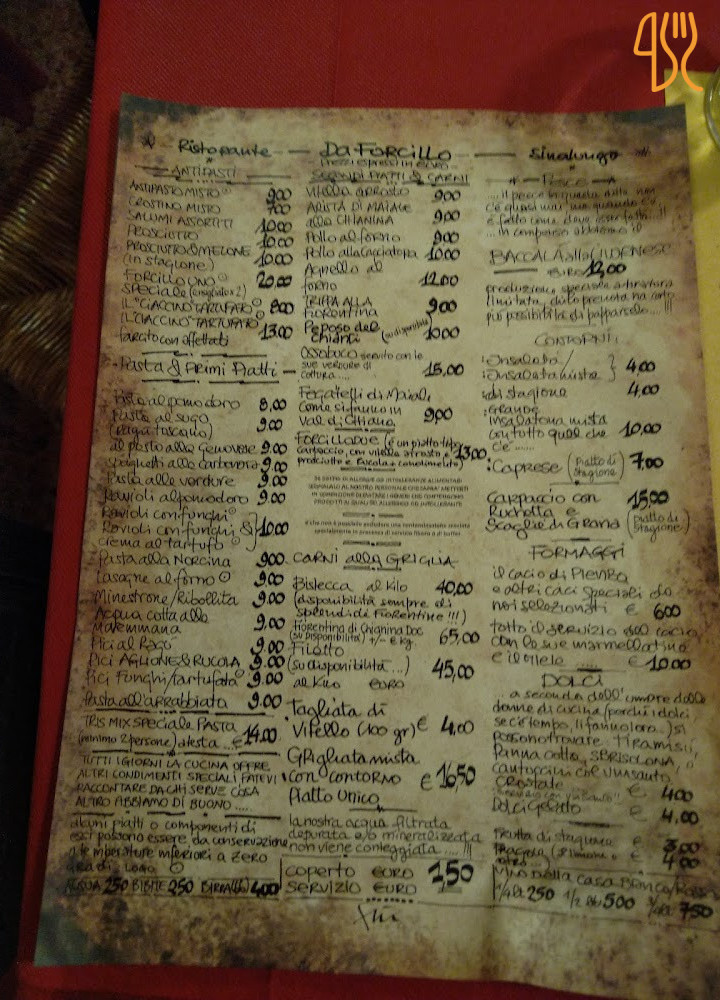 Ristorante — Da FORCILLO — Sinalunga
ANTIPASTI
ANTIPASTO MISTO 9,00
CROSTINO MISTO 7,00
SALUMI ASSORTITI 10,00
PROSCIUTTO 10,00
PROSCIUTTO & MELONE
(in stagione) 10,00
FORCILLO UNO 20,00
SPECIALE
IL "CIACCINO" TARTUFATO 8,00
IL "CIACCINO" TARTUFATO
farcito con affettati 13,00
Pasta & Primi Piatti
Pasta al pomodoro 8,00
Pasta al sugo
(ragù toscano) 9,00
al pesto alla Genovese 9,00
spaghetti alla carbonara 9,00
Pasta alle verdure 9,00
Ravioli al pomodoro 9,00
Ravioli con funghi
Ravioli con funghi &
crema al tartufo 10,00
Pasta alla NORCINA 9,00
Lasagne al forno 9,00
Minestrone/Ribollita 9,00
Acqua cotta alla
Maremmana 9,00
Pici al Ragù 9,00
Pici AGLIONE & RUCOLA 9,00
Pici Funghi/tartufata 9,00
Pasta all'arrabbiata 9,00
TRIS MIX SPECIALE PASTA
(minimo 2 persone) a testa ... € 14,00
TUTTI I GIORNI LA CUCINA OFFRE
ALTRI CONDIMENTI SPECIALI FATEVI
RACCONTARE DA CHI SERVE COSA
ALTRO ABBIAMO DI BUONO .....
alcuni piatti o componenti di
essi possono essere da conservazione
a temperature inferiori a zero
ACQUA 2,50 BIBITE 2,50 BIRRA 4,00
prezzi espressi in euro
SECONDI PIATTI & CARNI
Vitella arrosto 9,00
ARISTA DI MAIALE
alla CHIANINA 9,00
Pollo al forno 9,00
Pollo alla cacciatora 10,00
Agnello al
forno 12,00
TRIPPA ALLA
Fiorentina 9,00
Peposo del
Chianti (su disponibilità) 10,00
Ossobuco servito con le
sue verdure di
cottura.... 15,00
Fegatelli di Maiale
Come si fanno in
Val di Chiana 9,00
FORCILLO DUE (è un piatto tipo
carpaccio, con vitella arrosto e 13,00
prosciutto e rucola e condimento)
CARNI alla GRIGLIA
Bistecca al kilo 40,00
(disponibilità sempre di
splendidi Fiorentine !!!)
Fiorentina di Chianina Doc
(su disponibilità) +/- € kg. 65,00
Filetto
(su disponibilità ...) 45,00
al kilo EURO
Tagliata di
Vitello (100 gr) € 4,00
GRigliata mista
con contorno
Piatto Unico € 16,50
la nostra acqua filtrata
depurata e/o mineralizzata
non viene conteggiata....!!!
coperto EURO
servizio EURO 1,50
Pesce
BACCALÀ alla LIVORNESE
EURO 12,00
produzione speciale a tiratura
limitata, dato prenota na cert
più possibilità di papparselo....!!!
CONTORNI
insalata/
insalata mista 4,00
di stagione 4,00
GRANDE
insalatona mista
con tutto quel che
c'è..... 10,00
Caprese (piatto di stagione) 7,00
CARPACCIO con
Ruchetta e
Scaglie di Grana (piatto di stagione) 15,00
FORMAGGI
il cacio di PIENZA
e altri caci speciali da
noi selezionati € 6,00
tutto il servizio del cacio
con le sue marmellatine
e il miele € 10,00
DOLCI
a seconda dell'umore delle
donne di cucina (perché i dolci
se c'è tempo, li fanno loro...) si
possono trovare TIRAMISU,
Panna cotta, SBRISOLONA,
cantuccini col vinsanto
Crostate € 4,00
Dolci Gelato € 4,00
frutta di stagione € 3,00
fragole (limone o € 4,00
Vino della casa Bianco/Rosso
1/4 2,50 1/2 5,00 3/4 7,50